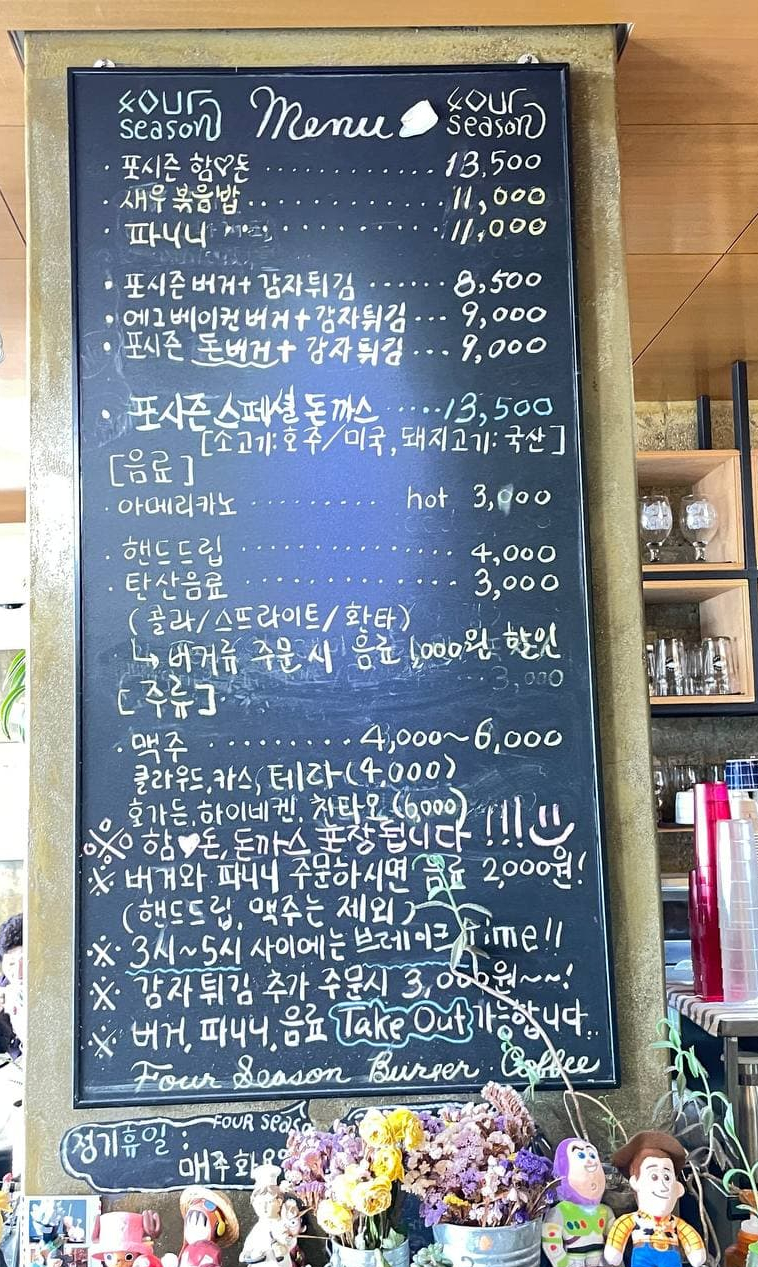 four season Menu four season
· 포시즌 함♡돈 ············ 13,500
· 새우볶음밥 ············ 11,000
· 파니니 ············ 11,000
· 포시즌버거+감자튀김 ······ 8,500
· 에그베이컨버거+감자튀김 ... 9,000
· 포시즌 돈버거+감자튀김 ... 9,000
· 포시즌스페셜돈까스 ····· 13,500
[소고기:호주/미국, 돼지고기:국산]
[음료]
· 아메리카노 ········· hot 3,000
· 핸드드립 ············ 4,000
· 탄산음료 ············ 3,000
(콜라/스프라이트/환타)
↳ 버거류 주문시 음료 1,000원 할인
3,000
[주류]
· 맥주 ········· 4,000~6,000
클라우드,카스,테라(4,000)
호가든,하이네켄,친타오(6,000)
※ 함♥돈,돈까스 포장됩니다!!!
※ 버거와 파니니 주문하시면 음료 2,000원!
(핸드드립, 맥주는 제외)
※ 3시~5시 사이에는 브레이크 Time!!
※ 감자튀김 추가 주문시 3,000원~~!
※ 버거, 파니니, 음료 Take Out 가능합니다..
Four Season Burger · Coffee
FOUR Season
정기휴일 :
매주화요